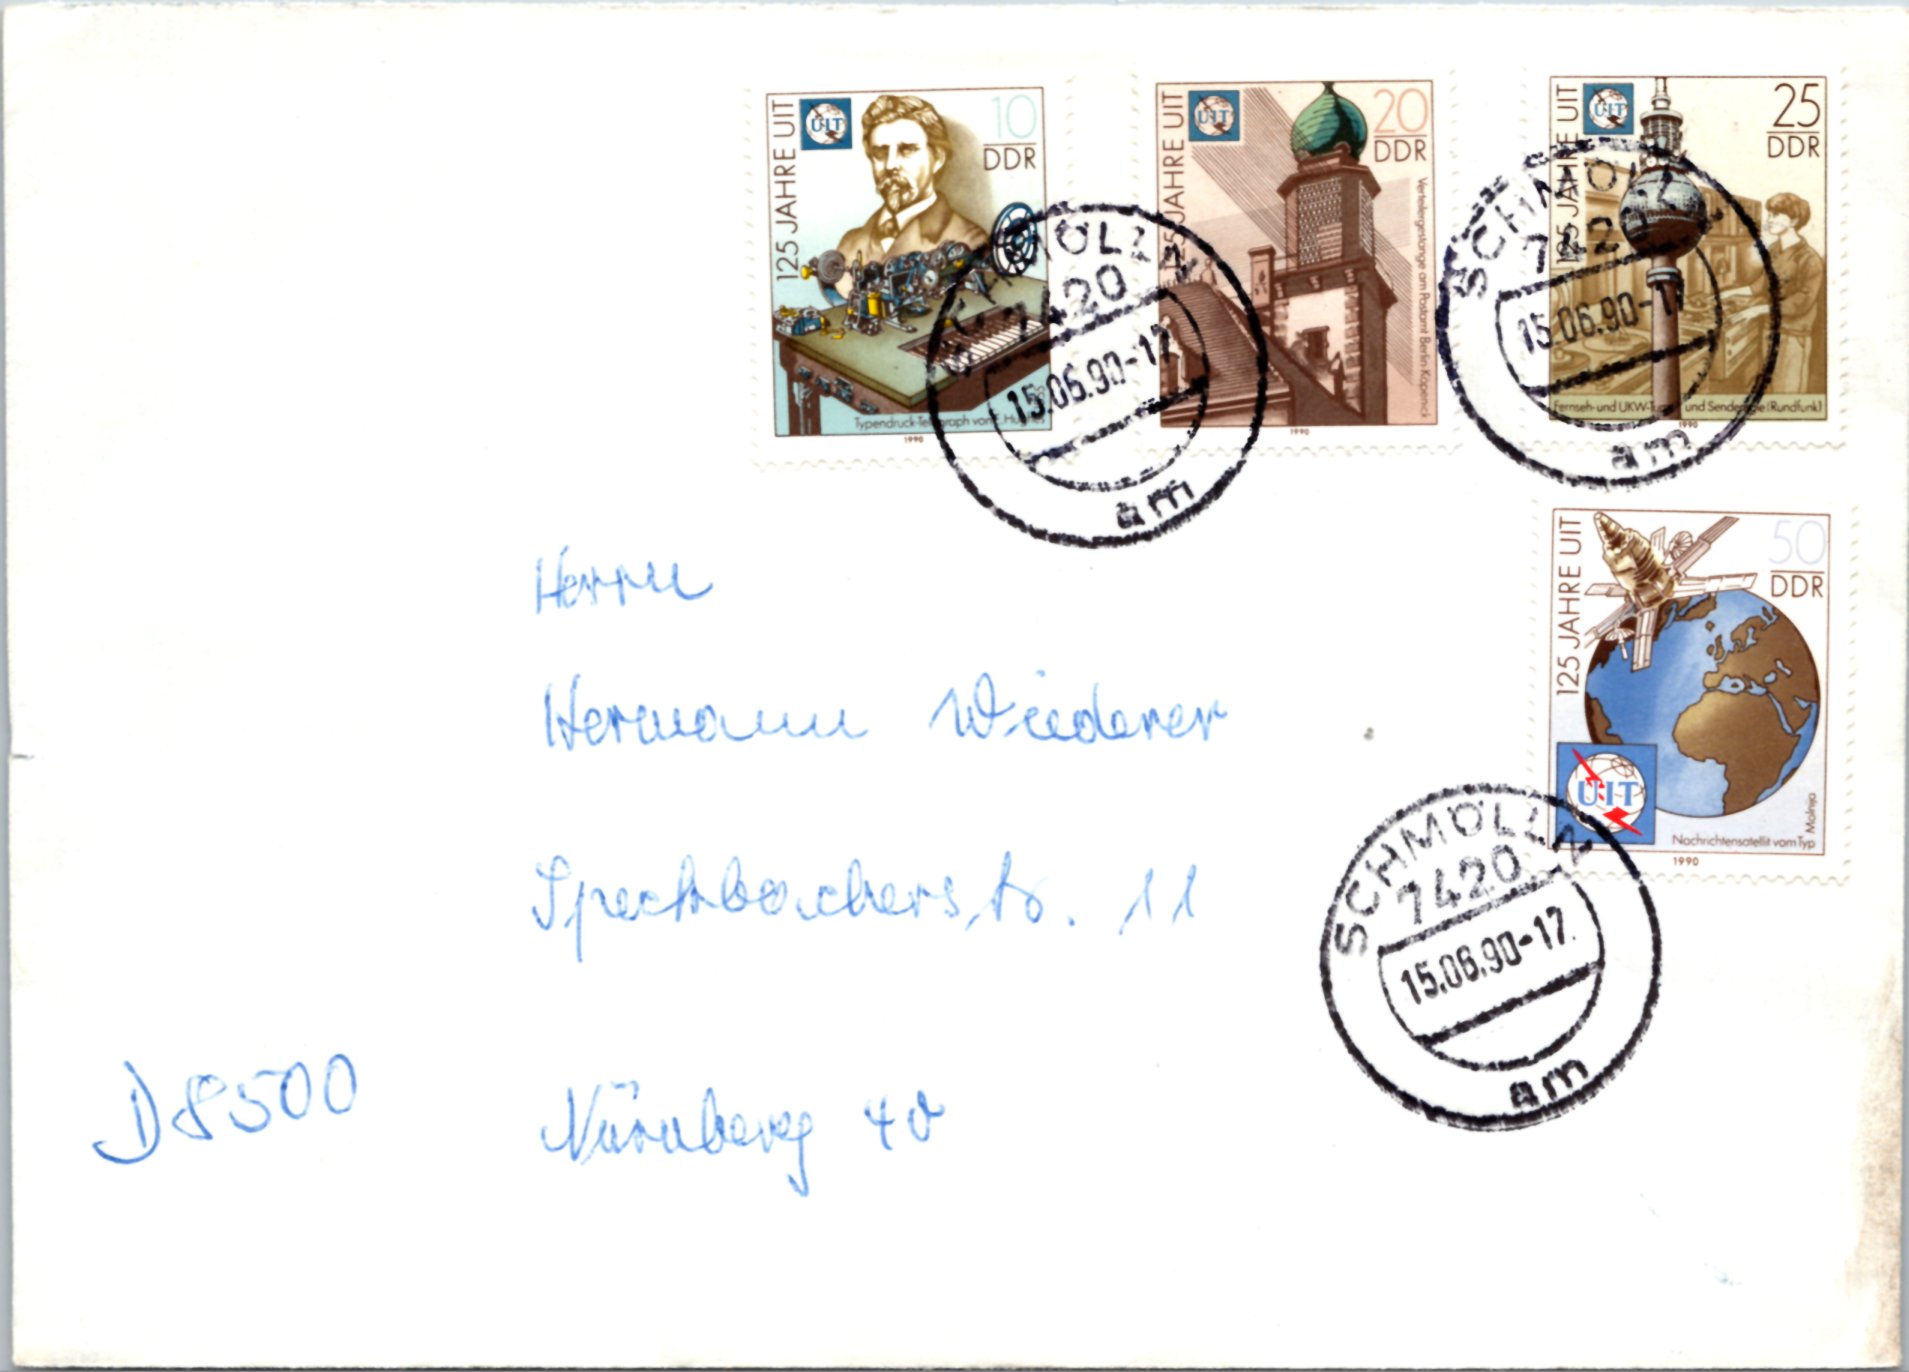 125 JAHRE UIT
UIT
10
DDR
Typendruck-Telegraph von E. Hughes
1990
125 JAHRE UIT
UIT
20
DDR
Verteilergestänge am Postamt Berlin-Köpenick
1990
125 JAHRE UIT
UIT
25
DDR
Fernseh- und UKW-Turm und Senderegie (Rundfunk)
1990
SCHMÖLLN
7420
15.06.90-17
am
SCHMÖLLN
7420
15.06.90-17
am
125 JAHRE UIT
50
DDR
UIT
Nachrichtensatellit vom Typ
Molnija
1990
SCHMÖLLN
7420
15.06.90-17
am
Herrn
Hermann Wiederer
Speckbacherstr. 11
D 8500 Nürnberg 40